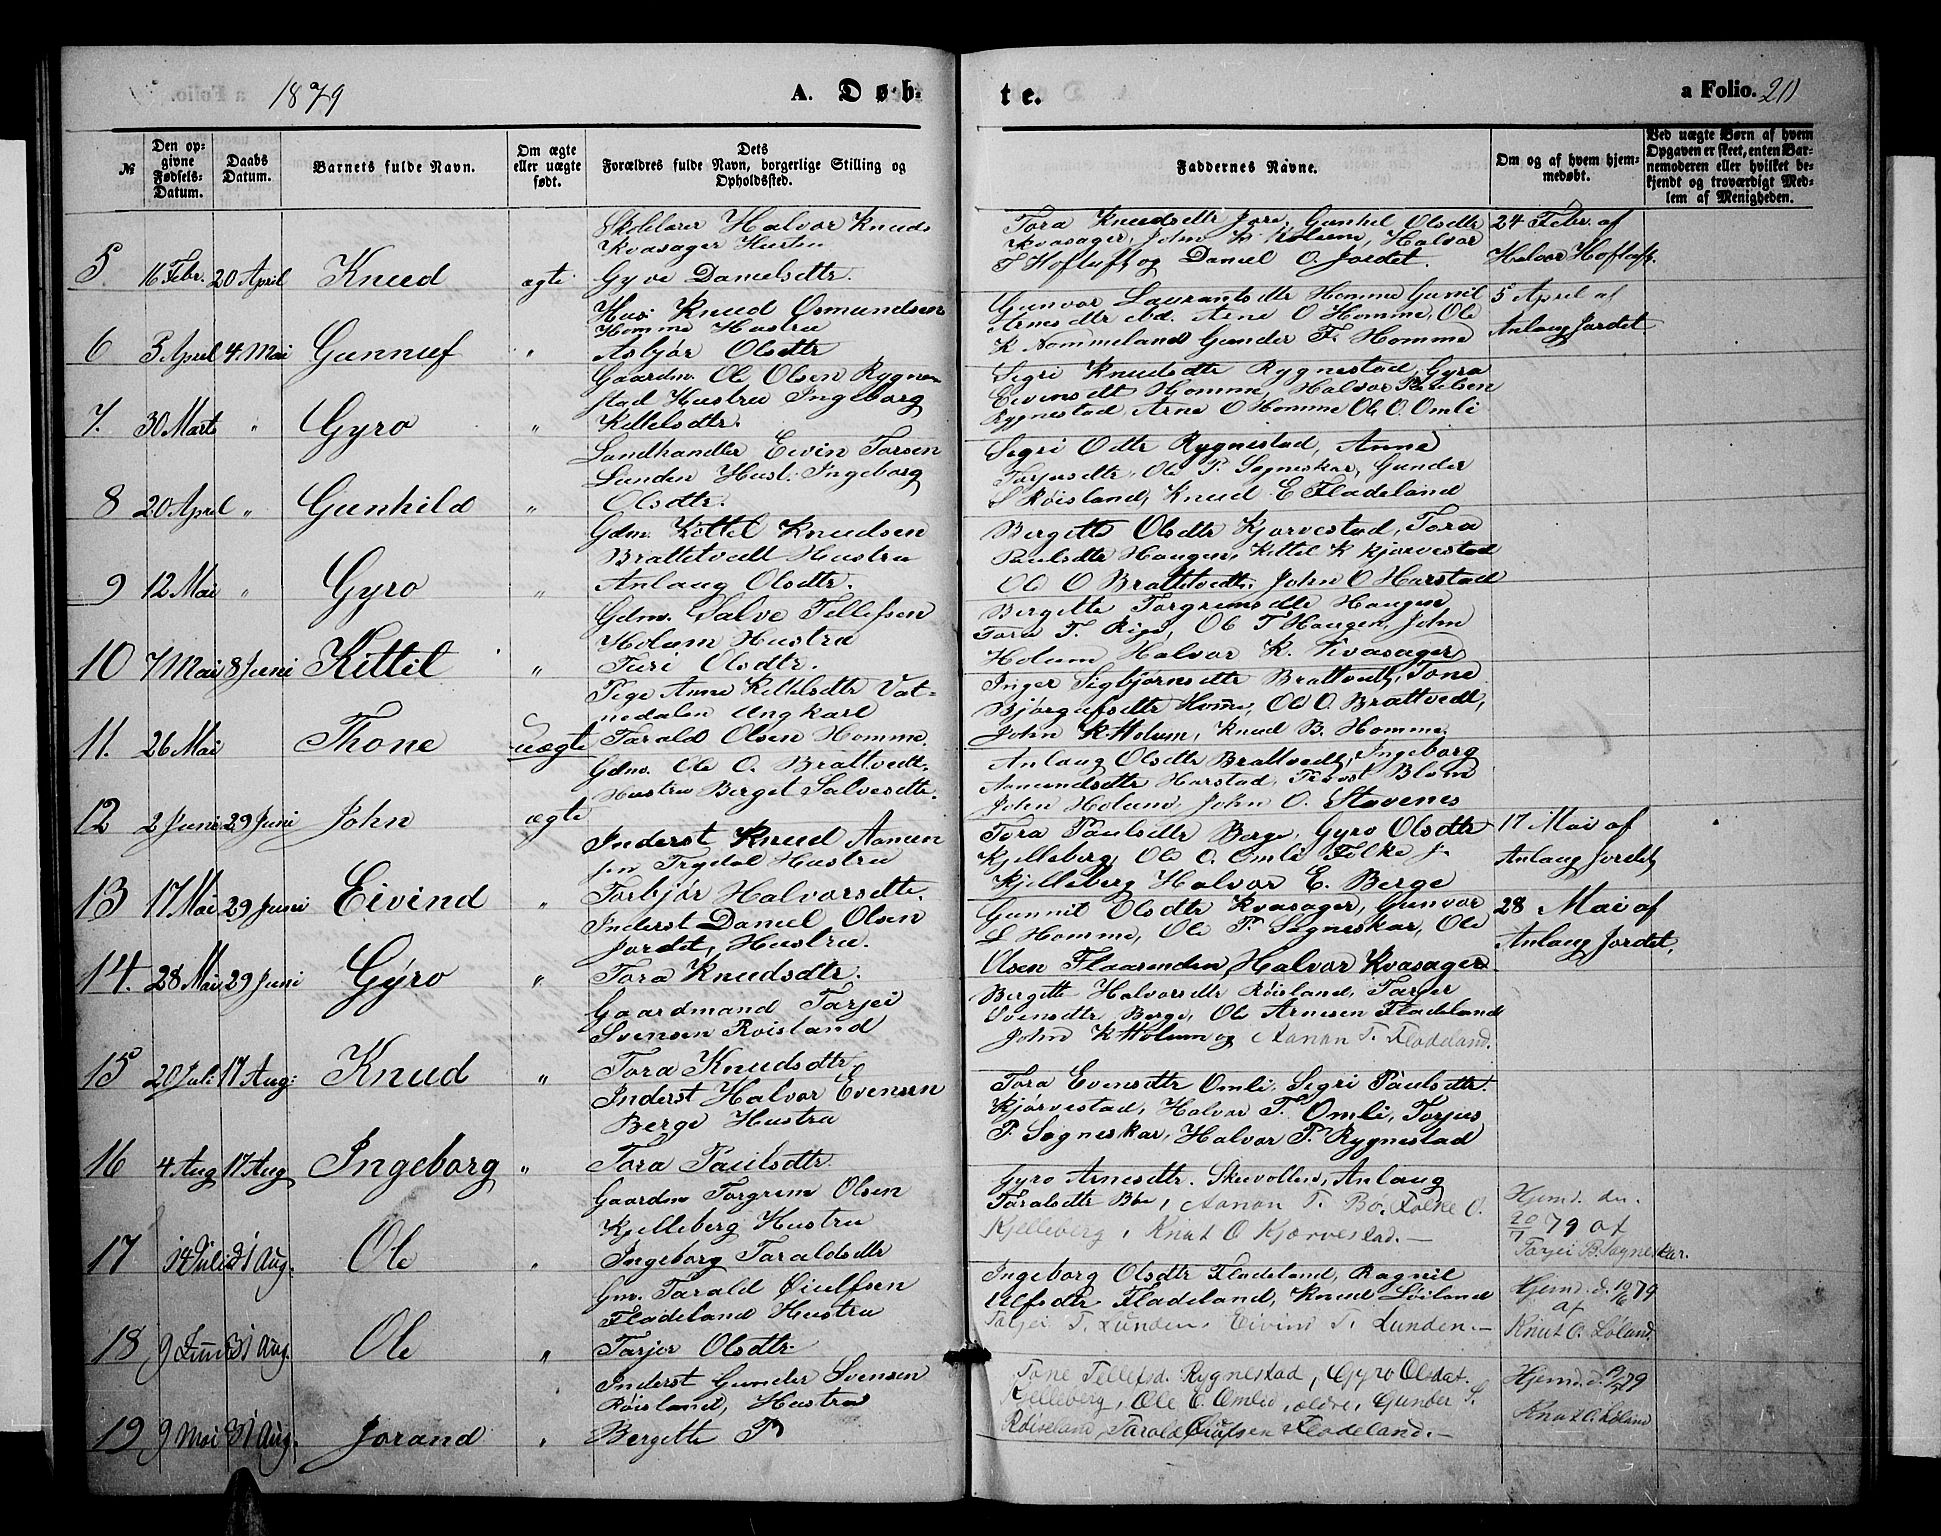 1879
A. Døb-
te.
a Folio. 20
№
Den opgivne Fødsels-Datum.
Daabs Datum.
Barnets fulde Navn.
Om ægte eller uægte født.
Dets Forældres fulde Navn, borgerlige Stilling og Opholdssted.
Faddernes Navne.
Om og af hvem hjemmedøbt.
Ved uægte Børn af hvem Opgaven er skeet, enten Barnemoderen eller hvilket bekjendt og troværdigt Medlem af Menigheden.
5 16 Febr. 20 April Knud ægte
Skolelærer Halvor Knuds
Kvasager Hustru
Gyro Danielsdtr.
Tora Knudsdtr Jore, Gunhil Olsdtr
Kvasager, John K Holum, Halvor
T Hoftuft og Daniel O. Jordet.
24 Febr. af
Halvor Hoftuft.
6 5 April 4. Mai Gunnuf "
Hus: Knud Osmundsen
Homme Hustru
Asbjør Olsdtr
Gunvor Laurantsdtr Homme Gunil
Arnesdtr ibd. Arne O Homme, Ole
K Nommeland Gunder F. Homme
5 April af
Anlaug Jordet
7. 30 Marts " Gyro "
Gaardm. Ole Olsen Rygne-
stad Hustru Ingeborg
Kittelsdtr.
Segri Knudsdtr Rygnestad, Gyro
Eivinsdt Homme, Halvor Paulsen
Rygnestad Arne O Homme Ole O. Omli
8 20 April " Gunhild "
Landhandler Eivin Tarsen
Lunden Hust. Ingeborg
Olsdtr.
Segri Odtr Rygnestad, Anne
Torjusdtr, Ole P. Sogneskar, Gunder
S Røisland, Knud E Fladeland
9 12 Mai " Gyro "
Gdm. Kittel Knudsen
Brattetvedt Hustru
Anlaug Olsdtr.
Bergette Olsdtr Kjørvestad, Tora
Paulsdtr Haugen, Kittel K Kjørvestad
Ole O Brattetvedt, John O Harstad
10 7 Mai 8 Juni Kittel "
Gdm. Salve Tellefsen
Holum Hustru
Turi Olsdtr.
Bergette Torgrimsdtr Haugen
Tora T. Rige, Ole T Haugen, John
Holum Halvor K. Kvasager
11. 26 Mai Thone uægte
Pige Anne Kittelsdtr Vat-
nedalen Ungkarl
Tarald Olsen Homme.
Inger Sigbjørnsdtr Brattvedt, Tone
Bjørgufsdtr Homme, Ole O. Brattvedt,
John K Holum, Knud B. Homme.
12 2 Juni 29 Juni John ægte
Gdm. Ole O. Brattvedt
Hustru Berget Salvesdtr.
Anlaug Olsdtr Brattvedt, Ingeborg
Aamundsdtr Harstad, Provst Blom
John Holum, John O. Stavenes
13 17 Mai 29 Juni Eivind "
Inderst Knud Aamun
sen Trydal Hustru
Torbjør Halvorsdtr.
Tora Paulsdtr Berge, Gyro Olsdtr
Kjelleberg, Ole O. Omli Folke J.
Kjelleberg Halvor E. Berge
17 Mai af
Anlaug Jordet
14. 28 Mai 29 Juni Gyro "
Inderst Daniel Olsen
Jordet, Hustru.
Tora Knudsdtr.
Gunnil Olsdtr Kvasager, Gunvor
L Homme, Ole P. Sogneskar, Ole
Olsen Flaarenden, Halvor Kvasager
28 Mai af
Anlaug Jordet,
15 20 Juli 17 Aug: Knud "
Gaardmand Tarjei
Svensen Roisland
Tora Knudsdtr
Bergette Halvorsdtr Røisland, Tarjer
Svensdtr Berge, Ole Arnesen Fladeland
John K Holum og Aanan T. Fladeland.
16 4. Aug 17 Aug Ingeborg "
Inderst Halvor Evensen
Berge Hustru
Tora Paulsdtr.
Tora Evensdtr Omli, Segri Paulsdtr.
Kjørvestad, Halvor T. Omli, Torjus
P. Sogneskar, Halvor P. Rygnestad
17 14 Juli 31 Aug. Ole "
Gaardm Torgrim Olsen
Kjelleberg Hustru
Ingeborg Taraldsdtr
Gyro Arnesdtr. Skuvollen, Anlaug
Taralsdtr Bøe, Aanon T. Bø. Folke O.
Kjelleberg, Knut O Kjørvestad. —
Hjemd. den.
20/7 79 af
Tarjei B. Sogneskar.
18 9 Juni 31 Aug. Ole "
Gm. Tarald Øiulfsen
Fladeland Hustru
Tarjer Olsdtr.
Ingeborg Olsdtr Fladeland, Ragnil
Ulfsdtr Fladeland, Knud Løiland
Tarjei T. Lunden, Eivind T. Lunden. —
Hjemd. d. 10/6 79
af
Knut O. Løland.
19 9 Mai 31 Aug. Jorand "
Inderst Gunder Svensen
Røisland, Hustru
Bergette P
Tone Tellefsd. Rygnestad, Gyro Olsdat.
Kjelleberg, Ole E. Omlid, ældre, Gunder S.
Røiseland, Tarald Øiufsen Fladeland. —
Hjemd. d. 79
Knut O. Løland